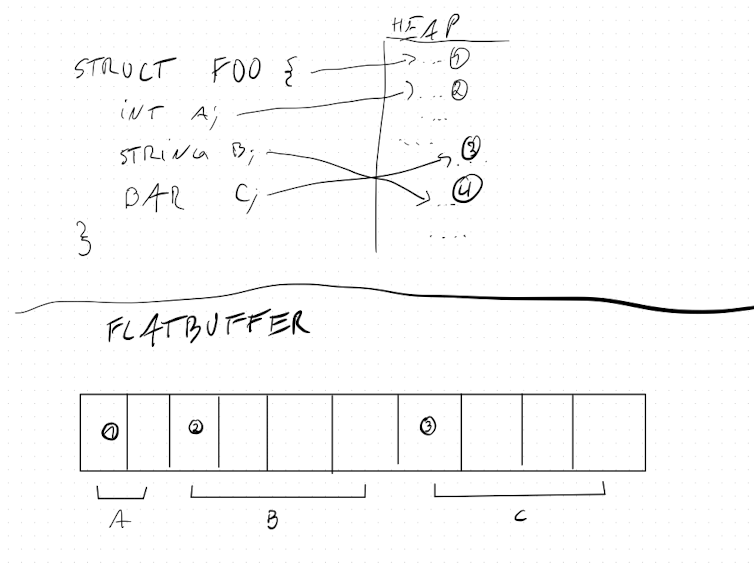 HEAP
STRUCT FOO { ... 1
INT A; ... 2
...
...
STRING B; 3 ...
BAR C; ... 4
}
....
FLATBUFFER
1 2 3
A B C